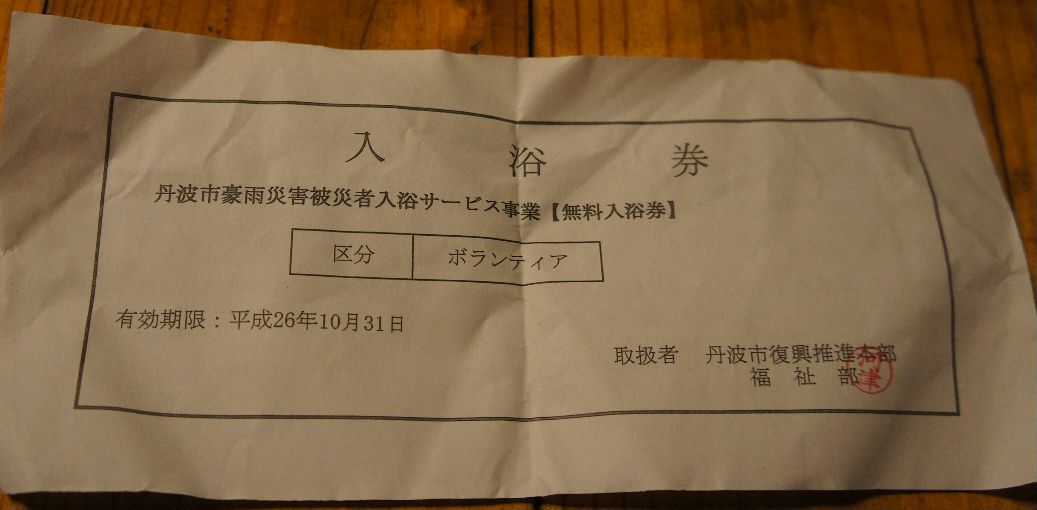 入浴券
丹波市豪雨災害被災者入浴サービス事業【無料入浴券】
区分 ボランティア
有効期限：平成26年10月31日
取扱者 丹波市復興推進本部
福祉部